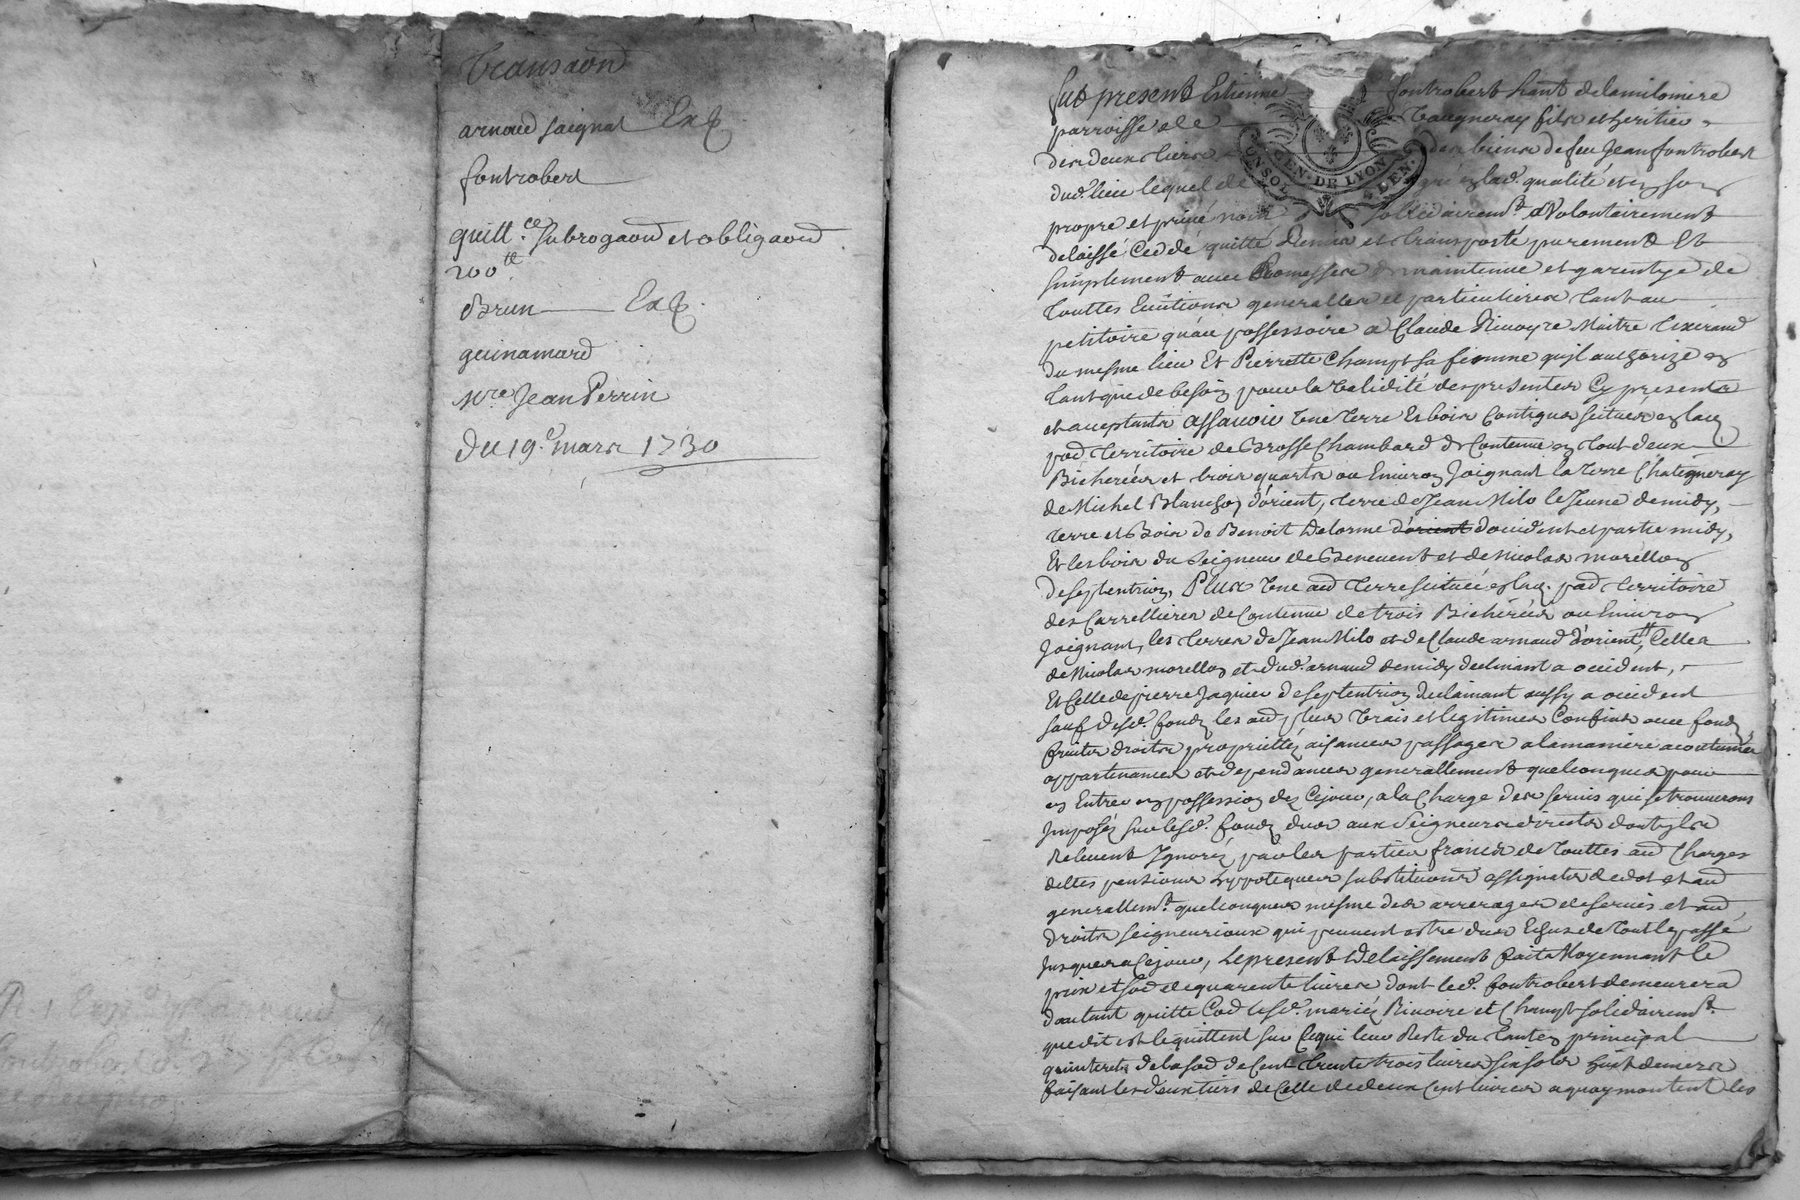 Transaōn
arnaud saignat Exp
fontrobert
quitt.ce subrogaōn et obligaōn
200tt
Brun Exp.
guinamard
Mre Jean Perrin
du 19.e mars 1730
fut present Estienne fontrobert habt delamilonière
parroisse de Vaugneray fils et heritier
des deux tiers des biens de feu Jean fontrobert
dud. lieu lequel de gré en lad. qualité et en son
propre et privé nom solidairemt. et Volontairement
delaissé Ceddé quitté Remis et transporté purement Et
simplement avec Promesses de maintenue et garentye de
touttes Evictions generalles et particulieres tant au
petitoire qu'au possessoire a Claude Rivoyre Maitre tixerand
du mesme lieu Et Pierrette Champt sa femme qu'il authorize en
tant que de besoin pour la validité des presentes Cy presents
et acceptants assavoir Une terre Et bois Contigus scitues en lad.
pad territoire de Brosse Chambard de Contenue en tout deux
Bicherées et trois quarts ou Environ Joignant la terre Chateigneray
de Michel Blanchon d'orient, terre de Jean Milo le Jeune de midy,
terre et Bois de Benoit Delorme d'orient d'occident et partie midy,
Et les bois du Seigneur de Benevent et de Nicolas morellon
de septentrion, Plus Une aud terre scituée en lad. pad territoire
des Carrellieres de Contenue de trois Bicherées ou Environ
Joignant, les terres de Jean Milo et de Claude arnaud d'orient, Celles
de Nicolas morellon et dud. arnaud de midy declinant a occident,
Et Celle de pierre Jaquier de septentrion declinant aussy a occident
sauf desd. fonds les aud plus Vrais et legitimes Confins avec fonds
fruits droits proprietés aisances passages a la maniere acoutumée
appartenances et dependances generallement quelconques pour
en Entrer en possession dez Cejour, a la Charge des servis qui se trouverons
Imposés sur lesd. fonds dus aux Seigneurs directs dont ils
Relevent Ignorés par les parties francs de touttes aud Charges
debtes pensions hypoteques substitutions assignats de dot et aud
generallemt. quelconques mesme des arrerages de servis et aud
droits seigneuriaux qui peuvent estre dus Echus de tout le passé
Jusques a Cejour, Le present delaissement fait Moyennant le
prix et soe de quarente livres dont led. fontrobert demeurera
d'autant quitte Cod lesd. mariés Rivoire et Champt solidairemt.
que dit est le quittent sur Cequi leur Reste du tantes principal
qu'interets de la soe de Cent trente trois livres six sols huit deniers
faisant les deux tiers de Celle de deux Cent livres a quoy montent les